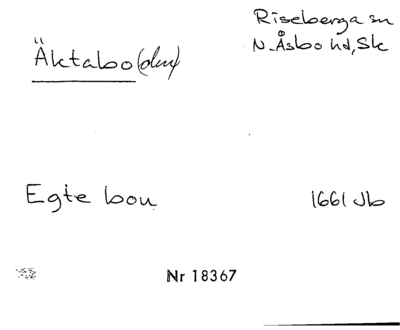 Riseberga sn
Äktabo(den) N. Åsbo hd, Sk
Egte bou 1661 Jb
Nr 18367